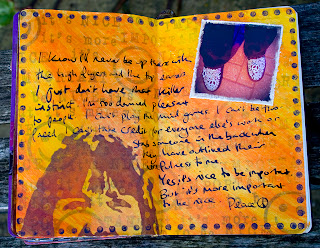 I know I'll never be up there with
the high flyers and the top earners
I just don't have that killer
instinct. I'm too damned pleasant
to people. I can't play the mind games. I can't be two
faced. I can't take credit for everyone else's work or
stab someone in the back when
they have outlived their
usefulness to me.
Yes, it's nice to be important.
But it's more important
to be nice.